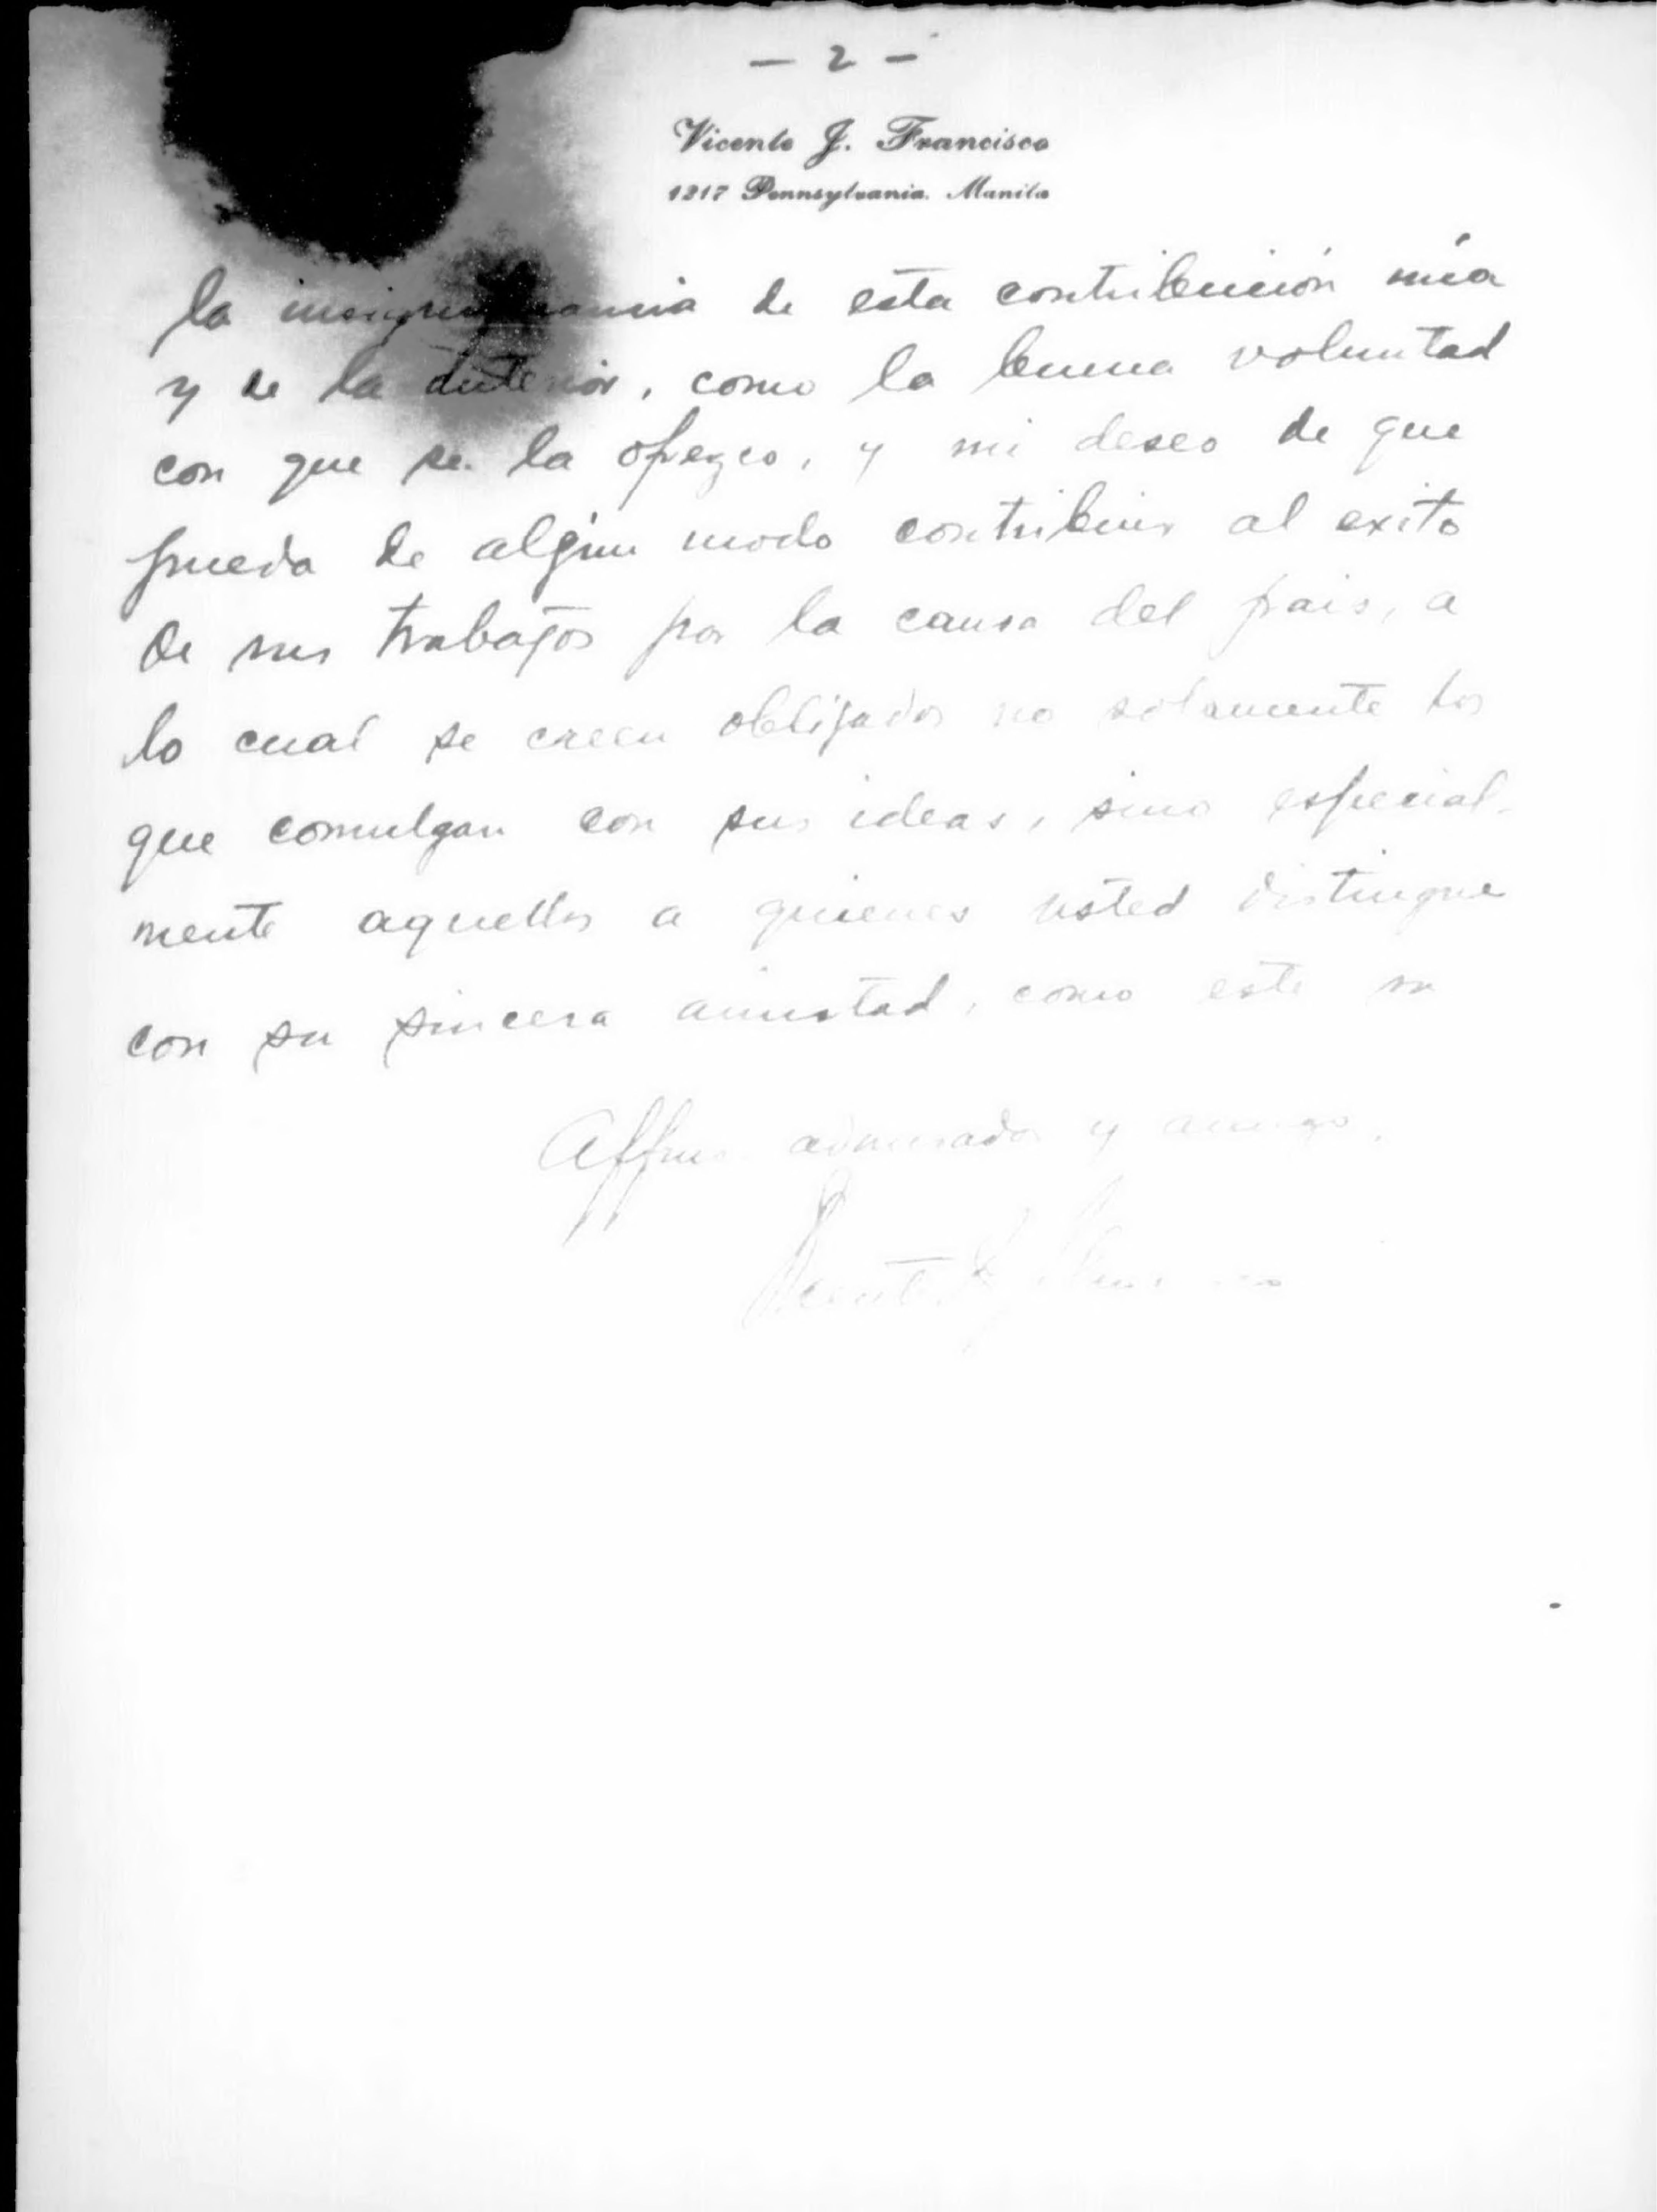 — 2 —
Vicente J. Francisco
1217 Pennsylvania. Manila
la insignificancia de esta contribución mía
y de la anterior, como la buena voluntad
con que se la ofrezco, y mi deseo de que
pueda de algún modo contribuir al exito
de sus trabajos por la causa del pais, a
lo cual se creen obligados no solamente los
que comulgan con sus ideas, sino especial-
mente aquellos a quienes usted distingue
con su sincera amistad, como este su
admirador y amigo,
Vicente J. Francisco